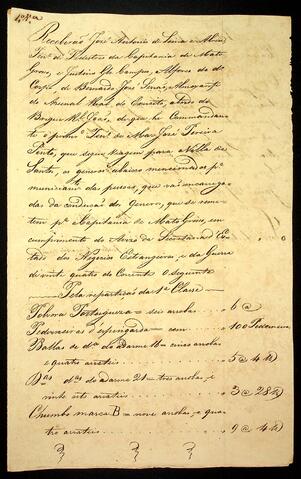 Receberão José Antonio de
Ten.e de Pedestres da Capitania de Mato
Grosso, e Justino Glz Campos, Alferes do d.o
Corpo de Bernardo José
do Arsenal Real do Exercito, a bordo do
Bergue
o Ten.e do Mar José Pereira
Pinto, que segue viagem para a Villa de
Santos, os generos abaixo mencionados p.a
das pessoas, que vão encarrega-
das da condução de Generos, que se reme-
tem p.a a Capitania de Mato Grosso, em
cumprimento do Avizo da Secretaria d'Es-
tado dos Negocios Estrangeiros, e da Guerra
de vinte quatro do Corrente. O seguinte
Pela repartição da 1.a Classe
Polvora Portugueza = seis arrobas .. 6 @
Pederneiras d'espingarda = cem .. 100 Pederneiras
Ballas de d.a do adarme 16 = cinco arrobas
e quatro arrateis .. 5 @ 4 lb
D.as d.as do adarme 21 = tres arrobas, e
vinte oito arrateis .. 3 @ 28 lb
Chumbo marca B = nove arrobas, e qua-
tro arrateis .. 9 @ 4 lb